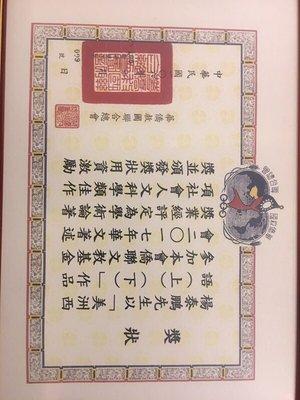 獎狀
楊泰鵬先生以「美洲西
語(上)(下)」作品
參加本會僑聯文教基金
會二〇一七年華文著述
獎業經評定為學術論著
項社會人文科學類佳作
獎並頒發獎狀用資激勵
華僑救國聯合總會
中華民國
日